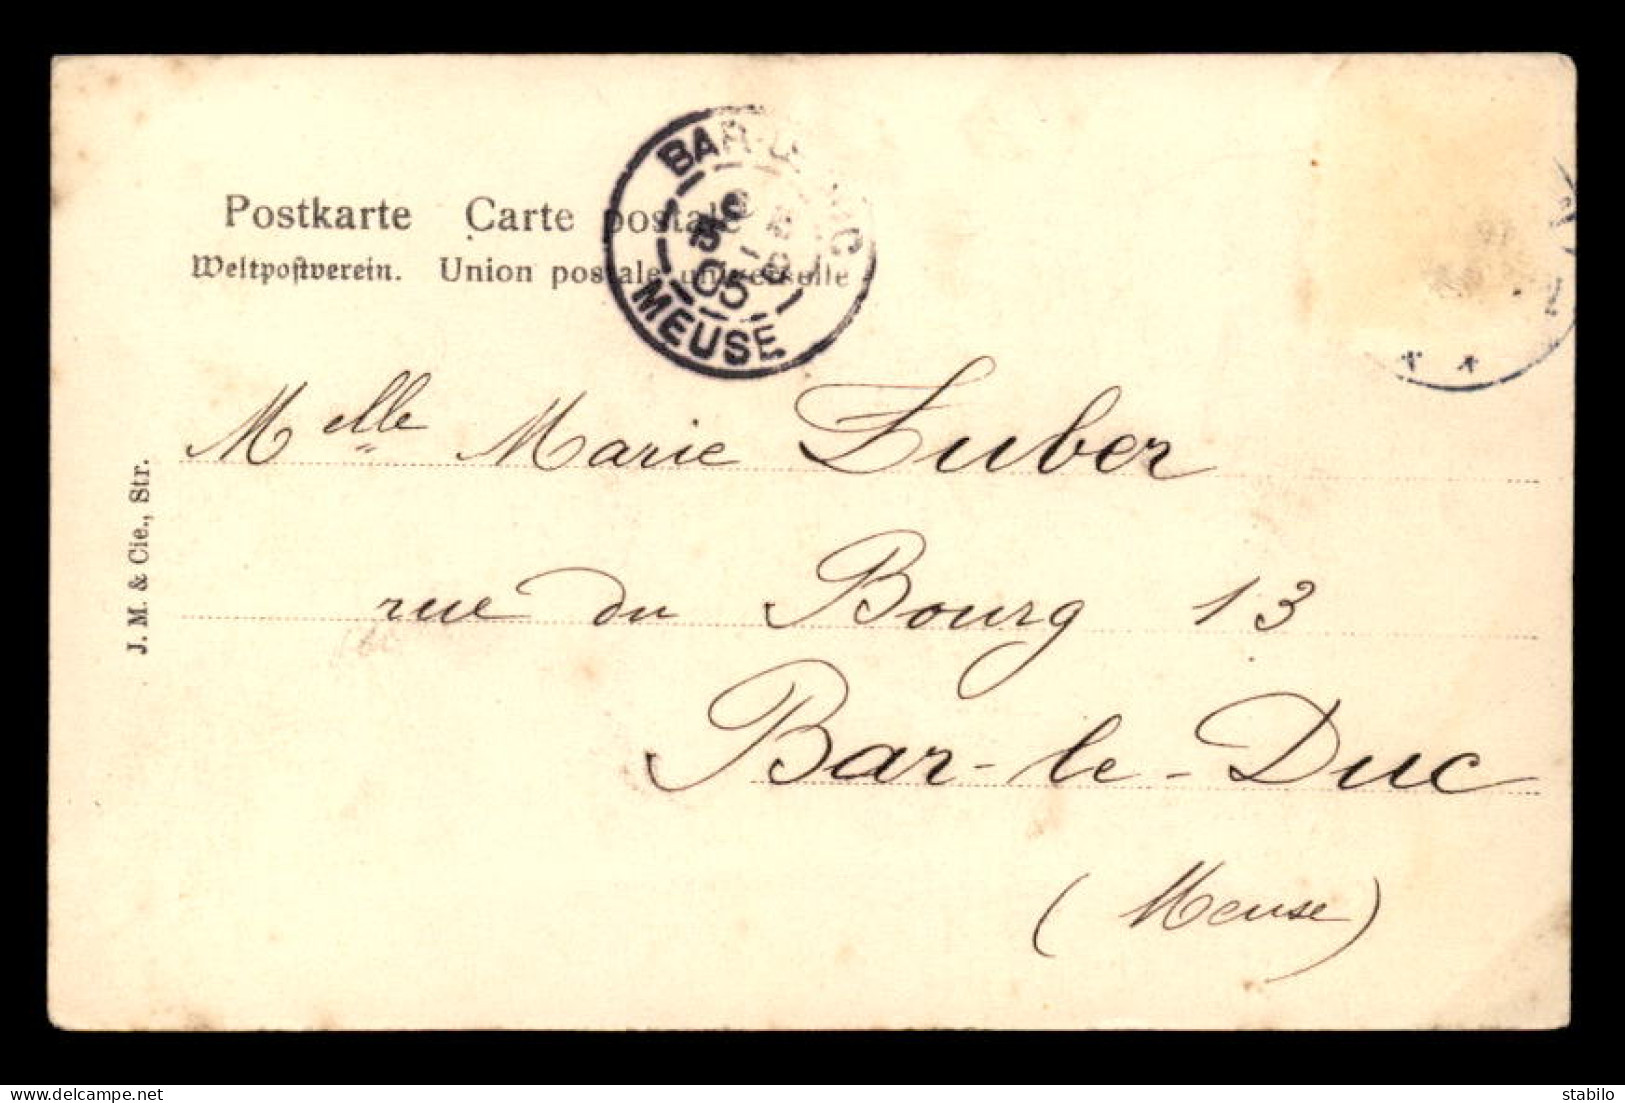 BAR-LE-DUC
05
MEUSE
Postkarte Carte postale
Weltpostverein. Union postale universelle
Melle Marie Zuber
rue du Bourg 13
Bar-le-Duc
(Meuse)
J. M. & Cie., Str.
stabilo | Delcampe.net